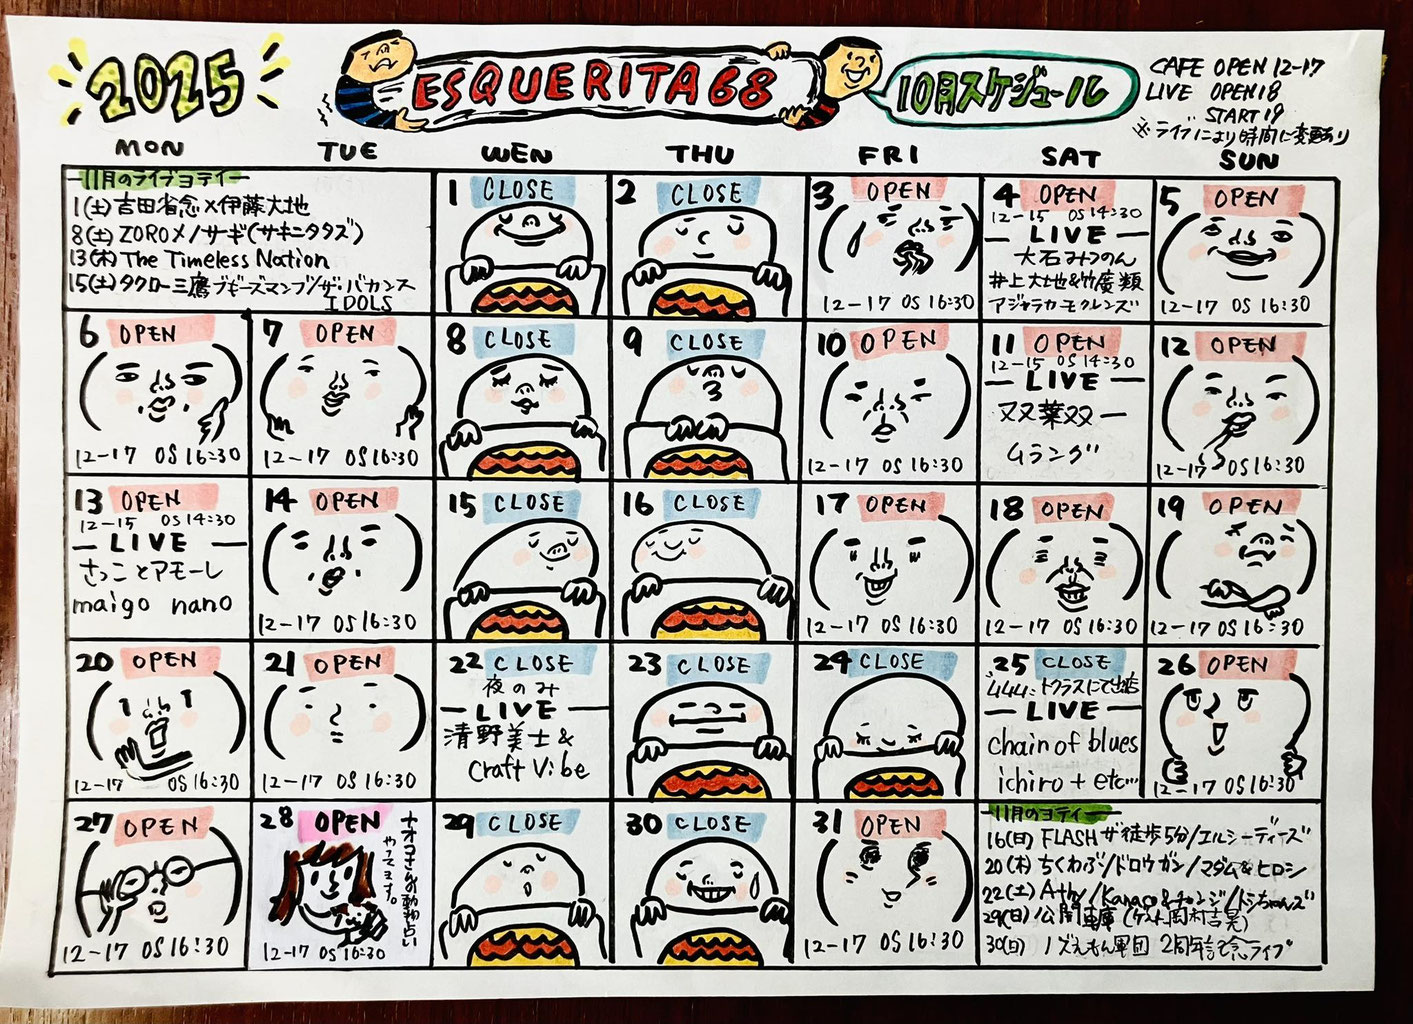 2025
ESQUERITA68
10月スケジュール
CAFE OPEN 12-17
LIVE OPEN18
START 19
※ライブにより時間に変更あり
MON TUE WEN THU FRI SAT SUN
11月のライブヨテイー
1(土)吉田省念×伊藤大地
8(土)ZOROメ/サーギ(サキニタタズ)
13(木)The Timeless Nation
15(土)タクロー三鷹ブギーズマンブ/ザ・バカンス
IDOLS
1 CLOSE
2 CLOSE
3 OPEN
12-17 OS16:30
4 OPEN
12-15 OS14:30
LIVE
大石みつのん
井上大地&竹廣類
アジャラカモクレンズ
5 OPEN
12-17 OS16:30
6 OPEN
12-17 OS16:30
7 OPEN
12-17 OS16:30
8 CLOSE
9 CLOSE
10 OPEN
12-17 OS16:30
11 OPEN
12-15 OS14:30
LIVE
双葉双一
ムラング
12 OPEN
12-17 OS16:30
13 OPEN
12-15 OS14:30
LIVE
さっことアモーレ
maigo nano
14 OPEN
12-17 OS16:30
15 CLOSE
16 CLOSE
17 OPEN
12-17 OS16:30
18 OPEN
12-17 OS16:30
19 OPEN
12-17 OS16:30
20 OPEN
12-17 OS16:30
21 OPEN
12-17 OS16:30
22 CLOSE
夜のみ
LIVE
清野美士&
Craft Vibe
23 CLOSE
24 CLOSE
25 CLOSE
トクラスにて出店
LIVE
chain of blues
ichiro + etc…
26 OPEN
12-17 OS16:30
27 OPEN
12-17 OS16:30
28 OPEN
ナオコさんの動物占い
やってます。
12-17 OS16:30
29 CLOSE
30 CLOSE
31 OPEN
12-17 OS16:30
11月のヨテイー
16(日)FLASH ザ徒歩5分/エルシーディーズ
20(木)ちくわぶ/ドロウガン/マダム&ヒロシ
22(土)Athy/Kanaco&チャンジ/トシちゃんズ
29(日)公開車庫(ゲスト岡村吉晃)
30(日)ノズえもん軍団 2周年記念ライブ